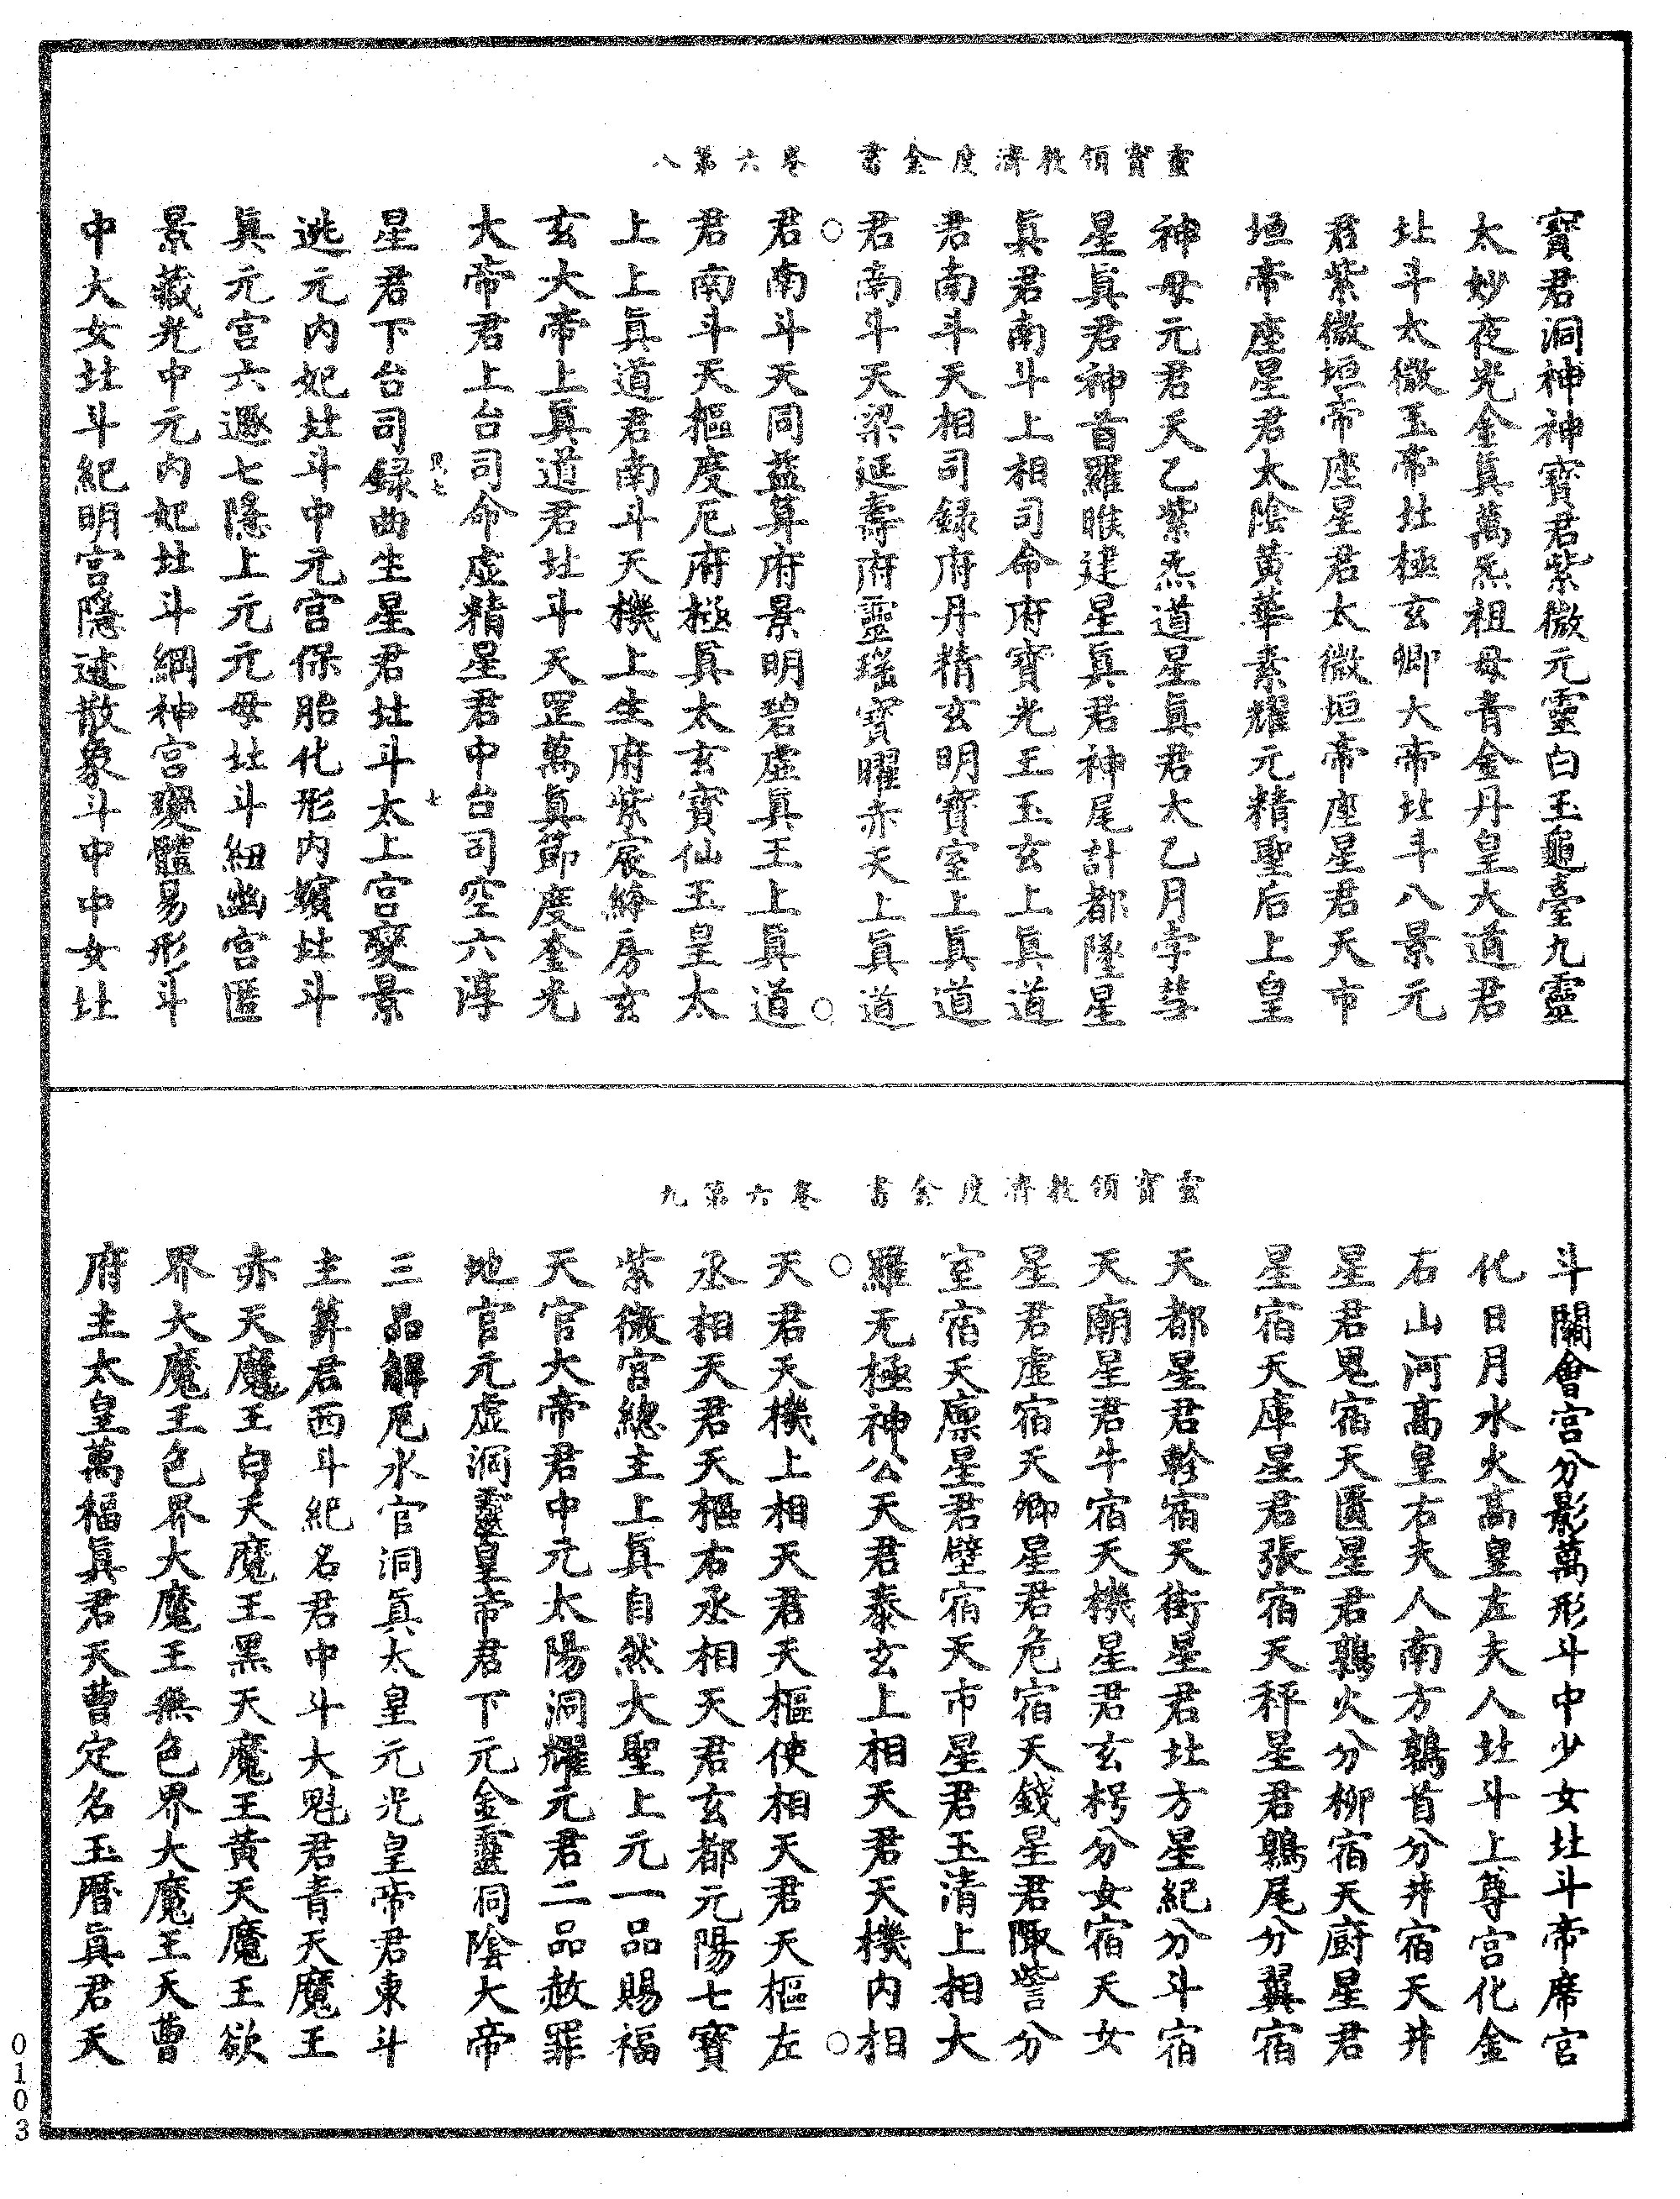 靈寶領教濟度金書　卷六第八
寶君洞神神寶君紫微元靈白玉龜臺九靈
太妙夜光金真萬炁祖母青金丹皇大道君
北斗太微玉帝北極玄卿大帝北斗八景元
君紫微垣帝座星君太微垣帝座星君天市
垣帝座星君太陰黃華素耀元精聖后上皇
神母元君天乙紫炁道星眞君太乙月孛彗
星眞君神首羅睺建星眞君神尾計都墜星
眞君南斗上相司命府寶光王玉玄上眞道
君南斗天相司録府丹精玄明寶室上眞道
君南斗天梁延壽府靈瑤寶曜赤天上眞道
君南斗天同益筭府景明碧虛眞王上眞道
君南斗天樞度厄府極眞太玄寶仙玉皇太
上上眞道君南斗天機上生府紫宸絳房玄
玄大帝上眞道君北斗天罡萬眞節度奎光
大帝君上台司命虛精星君中台司空六淳
星君下台司録曲生星君北斗太上宮變景
逃元内妃北斗中元宮保胎化形内嬪北斗
眞元宮六遯七隱上元元母北斗紐幽宮匿
景藏光中元内妃北斗綱神宮變體易形斗
中大女北斗紀明宮隱迹散象斗中中女北
靈寶領教濟度金書　卷六第九
斗關會宮分影萬形斗中少女北斗帝席宮
化日月水火高皇左夫人北斗上尊宮化金
石山河高皇右夫人南方鶉首分井宿天井
星君鬼宿天匱星君鶉火分柳宿天廚星君
星宿天庫星君張宿天秤星君鶉尾分翼宿
天都星君軫宿天街星君北方星紀分斗宿
天廟星君牛宿天機星君玄枵分女宿天女
星君虛宿天卿星君危宿天錢星君陬訾分
室宿天廩星君壁宿天市星君玉清上相大
羅无極神公天君泰玄上相天君天機内相
天君天機上相天君天樞使相天君天樞左
丞相天君天樞右丞相天君玄都元陽七寶
紫微宮總主上眞自然大聖上元一品賜福
天官大帝君中元太陽洞耀元君二品赦罪
地官元虛洞靈皇帝君下元金靈洞陰大帝
三品解厄水官洞眞太皇元光皇帝君東斗
主筭君西斗紀名君中斗大魁君青天魔王
赤天魔王白天魔王黑天魔王黃天魔王欲
界大魔王色界大魔王無色界大魔王天曹
府主太皇萬福眞君天曹定名玉曆眞君天
0103